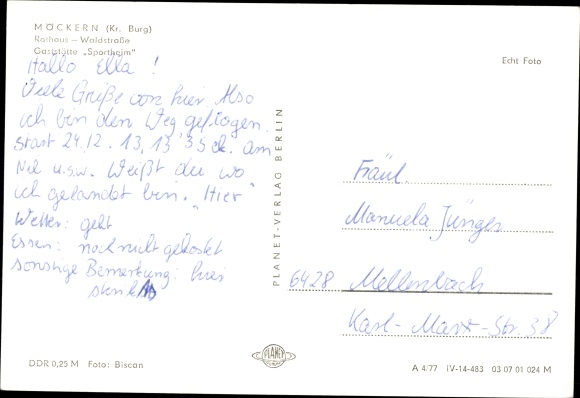 MÖCKERN (Kr. Burg)
Rathaus – Waldstraße
Gaststätte „Sportheim"
Echt Foto
Hallo Ella !
Viele Grüße von hier. Also
ich bin den Weg geflogen.
Start 24.12. 13, 13 am
u.s.w. Weißt du wo
ich gelandet bin. "Hier"
Wetter: geht
Essen: noch nicht gekostet
sonstige Bemerkung: hier
PLANET-VERLAG BERLIN
Fräul.
Manuela Jünger
6428 Mellenbach
Karl-Marx-Str. 38
DDR 0,25 M Foto: Biscan
PLANET
A 4/77 IV-14-483 03 07 01 024 M